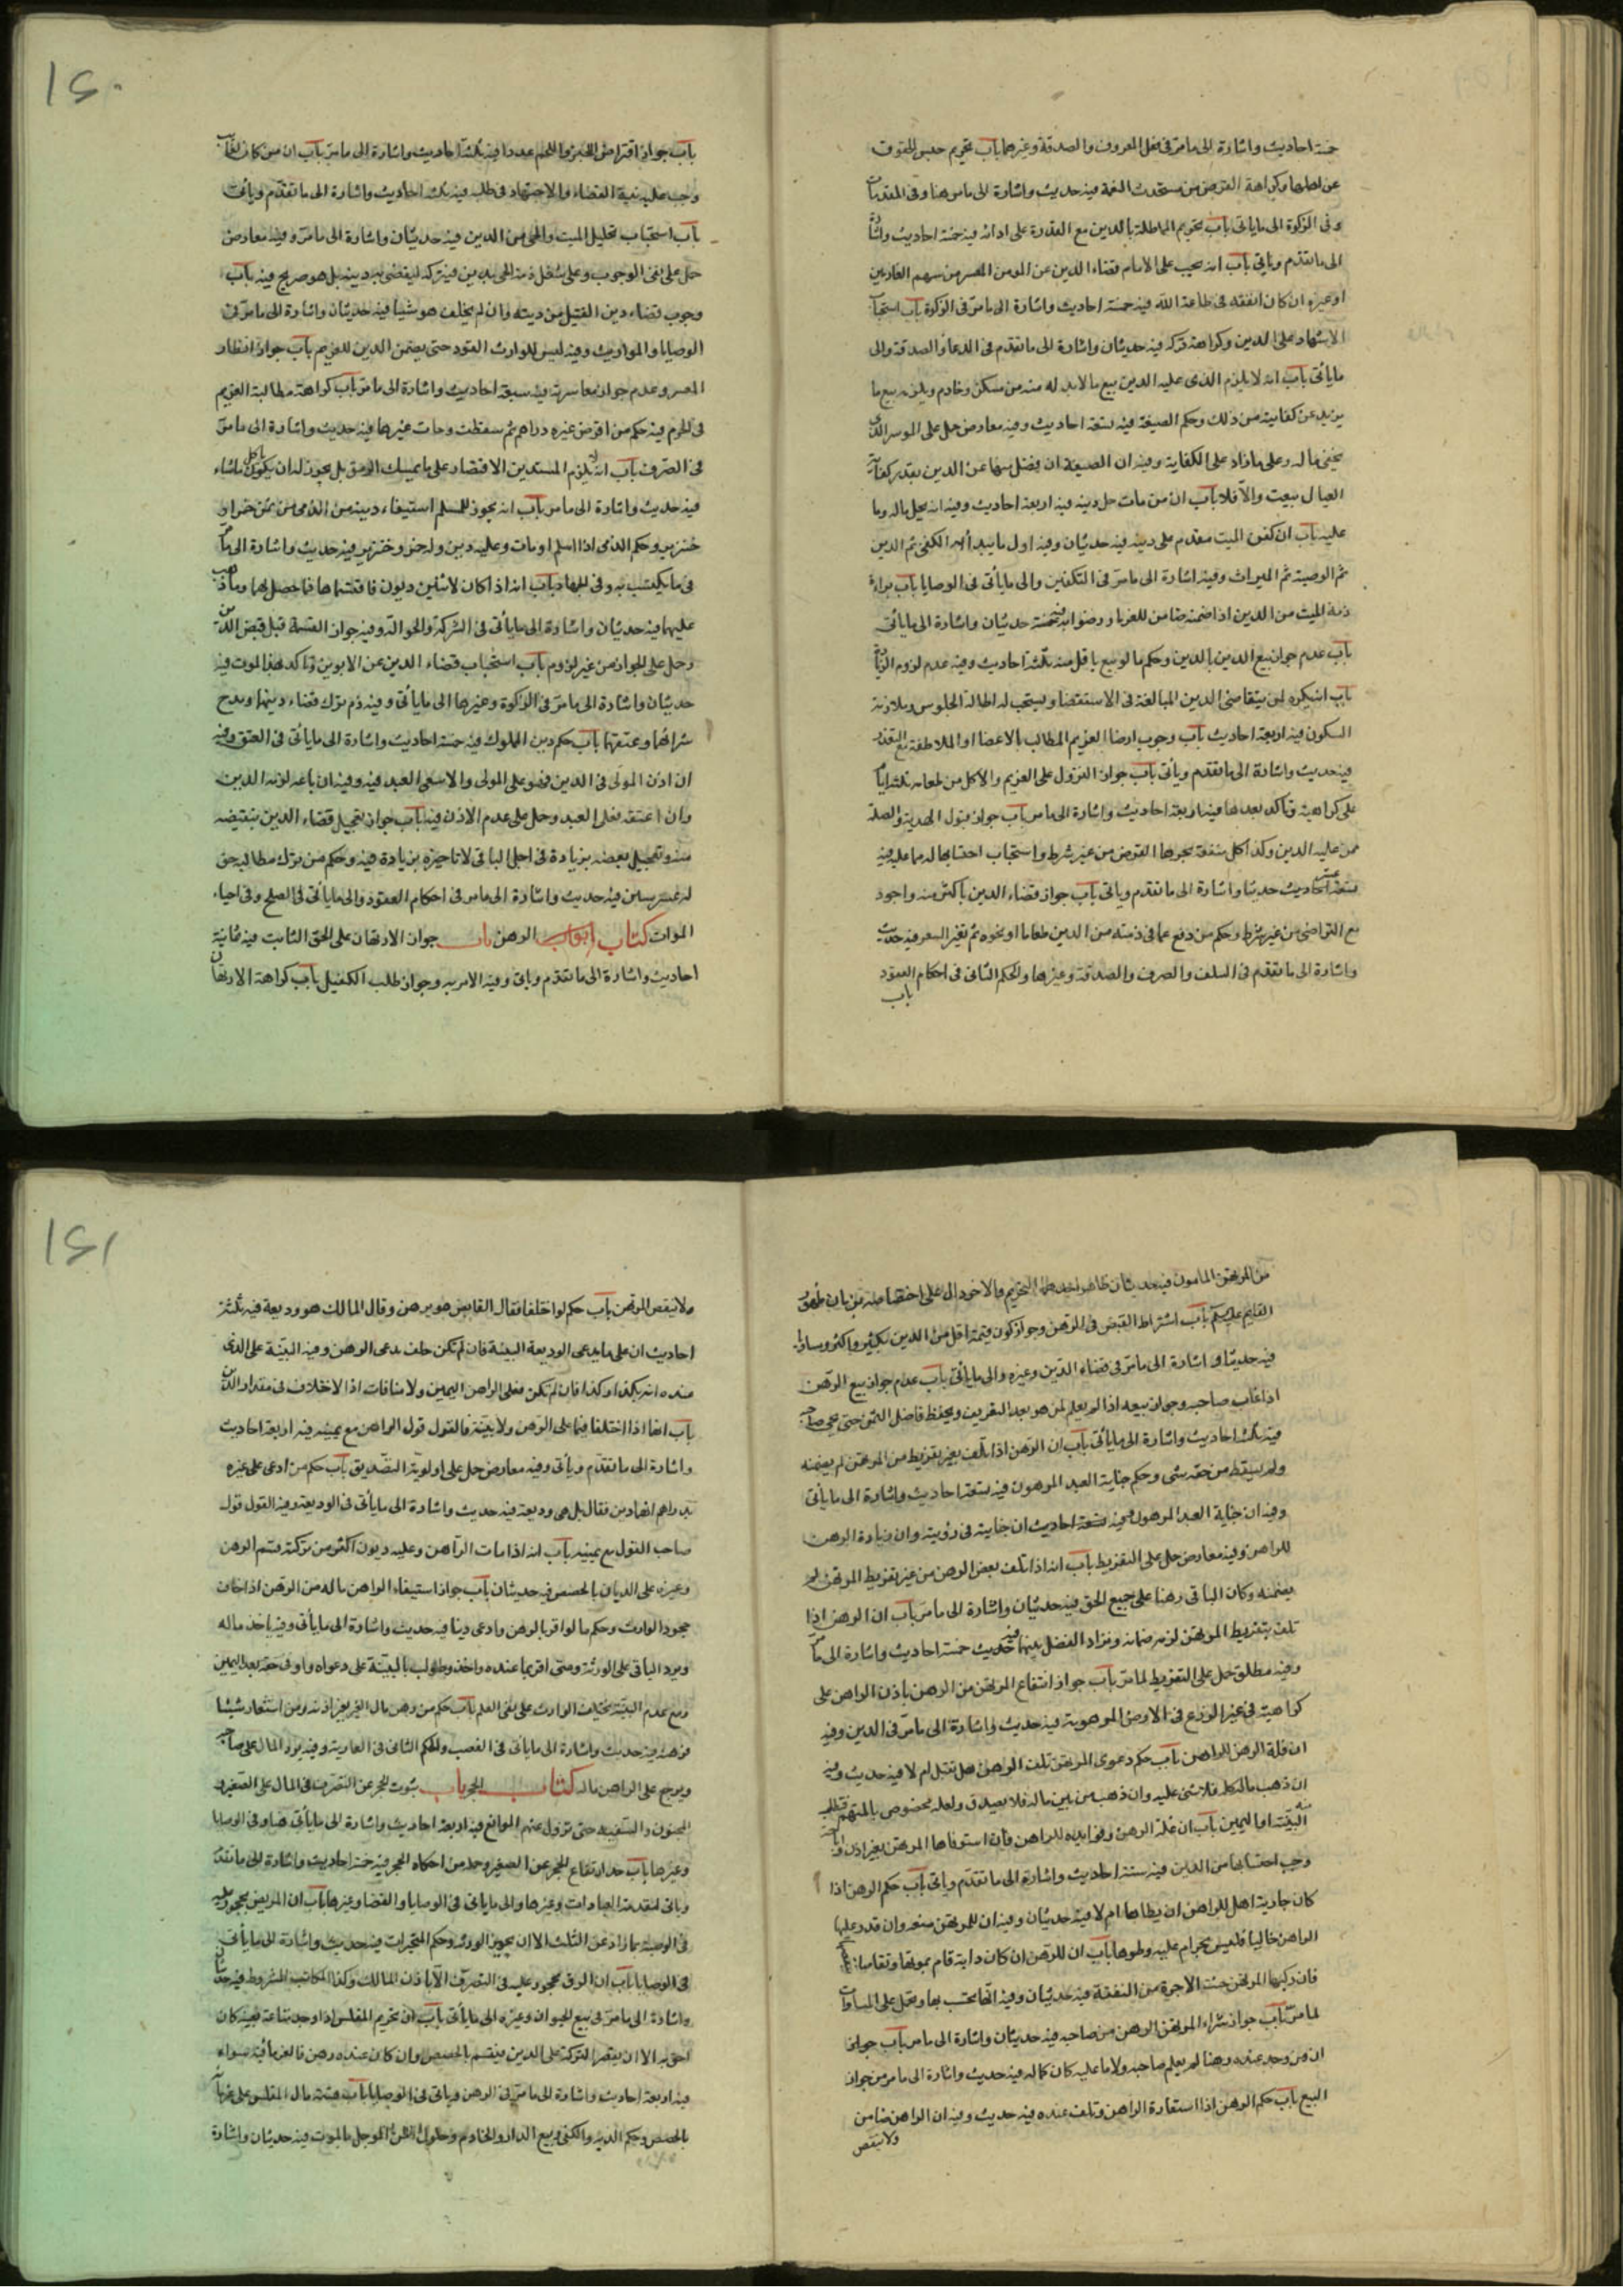 خمسة احاديث واشارة الى ما مرّ فى فعل المعروف والصدقة وغيرهما باب تحريم حبس الحقوق
عن اهلها وكراهة القرض من مستحدث النعمة فيه حديث واشارة الى ما مر هنا وفى المقدمات
وفى الزكوة الى ما ياتى باب تحريم المماطلة بالدين مع القدرة على ادائه فيه خمسة احاديث واشارة
الى ما تقدم وياتى باب انه يجب على الامام قضاء الدين عن المومن المعسر من سهم الغارمين
او غيره ان كان انفقه فى طاعة الله فيه خمسة احاديث واشارة الى ما مرّ فى الزكوة باب استحباب
الاشهاد على الدين وكراهة تركه فيه حديثان واشارة الى ما تقدم فى الدعاء والصدقة والى
ما يأتى باب انه لا يلزم الذى عليه الدين بيع ما لا بد له منه من مسكن وخادم ويلزمه بيع ما
يزيد عن كفايته من ذلك وحكم الضيعة فيه تسعة احاديث وفيه معارض حمل على الموسر الذى
يخفى ماله وعلى ما زاد على الكفاية وفيه ان الضيعة ان فضل منها عن الدين بقدر كفاية
العيال بيعت والّا فلا باب ان من مات حل دينه فيه اربعة احاديث وفيه انه يحل ماله وما
عليه باب ان كفن الميت مقدم على دينه فيه حديثان وفيه اول ما يبدأ به الكفن ثم الدين
ثم الوصية ثم الميراث وفيه اشارة الى ما مرّ فى التكفين والى ما يأتى فى الوصايا باب براءة
ذمة الميت من الدين اذا ضمنه ضامن للغرماء ورضوا به فيه خمسة حديثان واشارة الى ما ياتى
باب عدم جواز بيع الدين بالدين وحكم ما لو بيع باقل منه فيه ثلثة احاديث وفيه عدم لزوم الزيادة
باب انه يكره لمن يتقاضى الدين المبالغة فى الاستقضا ويستحب له اطالة الجلوس وملازمة
السكون فيه اربعة احاديث باب وجوب ارضاء الغريم المطالب بالاعضا او الملاطفة مع التعذر
فيه حديث واشارة الى ما تقدم ويأتى باب جواز النزول على الغريم والاكل من طعامه ثلثة ايام
على كراهية وتأكد بعدها فيه اربعة احاديث واشارة الى ما مر باب جواز قبول الهدية والصلة
ممن عليه الدين وكذا كل منفعة يجرها القرض من غير شرط واستحباب احتسابها له مما عليه فيه
تسعة عشر احاديث حديثا واشارة الى ما تقدم وياتى باب جواز قضاء الدين باكثر منه واجود
مع التراضى من غير شرط وحكم من دفع عما فى ذمته من الدين طعاما او نحوه ثم تغير السعر فيه حديث
واشارة الى ما تقدم فى السلف والصرف والصدقة وغيرها والحكم الثانى فى احكام العقود
باب
١٦٠
باب جواز اقتراض الخبز واللحم عددا فيه ثلثة احاديث واشارة الى ما مرّ باب ان من كان غائبا
وجب عليه نية القضاء والاجتهاد فى طلبه فيه ثلثة احاديث واشارة الى ما تقدم ويأتى
باب استحباب تحليل الميت والحى من الدين فيه حديثان واشارة الى ما مرّ وفيه معارض
حمل على نفى الوجوب وعلى شغل ذمة الحى بدين فيتركه ليقضى به دينه بل هو صريح فيه باب
وجوب قضاء دين القتيل من ديته وان لم يخلف هو شيئا فيه حديثان واشارة الى ما مرّ فى
الوصايا والمواريث وفيه ليس للوارث القود حتى يضمن الدين للغريم باب جواز انظار
المعسر وعدم جواز معاسرته فيه سبعة احاديث واشارة الى ما مرّ باب كراهة مطالبة الغريم
فى الحرم فيه حكم من اقرض غيره دراهم ثم سقطت وجاءت غيرها فيه حديث واشارة الى ما مرّ
فى الصّرف باب انه لا يلزم المستدين الاقتصار على ما يمسك الرمق بل يجوز له ان يأكل ما شاء
فيه حديث واشارة الى ما مر باب انه يجوز للمسلم استيفاء دينه من الذمى من ثمن خمر او
خنزير وحكم الذمى اذا اسلم او مات وعليه دين وله خمر وخنزير فيه حديث واشارة الى ما مرّ
فى ما يكتسب به وفى الجهاد باب انه اذا كان لاثنين ديون فاقتسماها فما حصل لهما وما ذهب
عليهما فيه حديثان واشارة الى ما يأتى فى الشركة والحوالة وفيه جواز القسمة قبل قبض الدين
وحمل على الجواز من غير لزوم باب استحباب قضاء الدين عن الابوين وتأكده بعد الموت فيه
حديثان واشارة الى ما مرّ فى الزكوة وغيرها الى ما يأتى وفيه ذم ترك قضاء دينهما ومدح
شرائهما وعتقهما باب حكم دين المملوك فيه خمسة احاديث واشارة الى ما يأتى فى العتق وفيه
ان اذن المولى فى الدين فهو على المولى والا سعى العبد فيه وفيه ان باعه لزمه الدين
وان اعتقه فعلى العبد وحمل على عدم الاذن فيه باب جواز تعجيل قضاء الدين بنقيصة
منه وتعجيل بعضه بزيادة فى اجل الباقى لا تاخيره بزيادة فيه وحكم من ترك مطالبة حق
له عشر سنين فيه حديث واشارة الى ما مر فى احكام العقود والى ما يأتى فى الصلح وفى احياء
الموات كتاب ابواب الرهن باب جواز الارتهان على الحق الثابت فيه ثمانية
احاديث واشارة الى ما تقدم وياتى وفيه الامر به وجواز طلب الكفيل باب كراهة الارتهان
من المرتهن المامون فيه حديثان ظاهر احدهما التحريم والاخر دال على اختصاصه بزمان ظهور
القايم عليه السلم باب اشتراط القبض فى الرهن وجواز كون قيمته اقل من الدين بكثير واكثر ومساويا
فيه حديثا واشارة الى ما مرّ فى قضاء الدين وغيره والى ما يأتى باب عدم جواز بيع الرهن
اذا غاب صاحبه وجواز بيعه اذا لم يعلم لمن هو بعد التعريف ويحفظ فاضل الثمن حتى يجى صاحبه
فيه ثلثة احاديث واشارة الى ما يأتى باب ان الرهن اذا تلف بغير تفريط من المرتهن لم يضمنه
ولم يسقط من حقه شى وحكم جناية العبد المرهون فيه تسعة احاديث واشارة الى ما يأتى
وفيه ان جناية العبد المرهون فيه تسعة احاديث ان جنايته فى رقبته وان زيادة الرهن
للراهن وفيه معارض حمل على التفريط باب انه اذا تلف بعض الرهن من غير تفريط المرتهن لم
يضمنه وكان الباقى رهنا على جميع الحق فيه حديثان واشارة الى ما مرّ باب ان الرهن اذا
تلف بتفريط المرتهن لزمه ضمانه وترادا الفضل بينهما فيه حديث خمسة احاديث واشارة الى ما مرّ
وفيه مطلق حمل على التفريط لما مرّ باب جواز انتفاع المرتهن من الرهن باذن الراهن على
كراهية فى غير الزرع فى الارض المرهونة فيه حديث واشارة الى ما مرّ فى الدين وفيه
ان غلة الرهن للراهن باب حكم دعوى المرتهن تلف الرهن هل تقبل ام لا فيه حديث وفيه
ان ذهب ماله كله فلا شئ عليه وان ذهب من بين ماله فلا يصدق ولعله مخصوص بالمتهم فتطلب منه
البيّنة او اليمين باب ان غلة الرهن وفوايده للراهن فان استوفاها المرتهن بغير اذن واباحة
وجب احتسابها من الدين فيه ستة احاديث واشارة الى ما تقدم وياتى باب حكم الرهن اذا
كان جارية اهل للراهن ان يطاها ام لا فيه حديثان وفيه ان للمرتهن منعه وان قدر عليها
الراهن خاليا فليس بحرام عليه وطوها باب ان الرهن ان كان دابة قام بمؤنتها وتقاصا
فان ركبها المرتهن حسبت الاجرة من النفقة فيه حديثان وفيه انها تحتسب بها وحمل على المساوات
لما مرّ باب جواز شراء المرتهن الرهن من صاحبه فيه حديثان واشارة الى ما مر باب جواز
ان من وجد عنده رهنا لم يعلم صاحبه ولا ما عليه كان كماله فيه حديث واشارة الى ما مر من جواز
البيع باب حكم الرهن اذا استعاره الراهن وتلف عنده فيه حديث وفيه ان الراهن ضامن
ولا ينقص
١٦١
ولا ينقص المرتهن باب حكم لو اختلفا فقال القابض هو رهن وقال المالك هو وديعة فيه ثلثة
احاديث ان على ما يدعى الوديعة البينة فان لم تكن حلف مدعى الرهن وفيه البيّنة على الذى
عنده انه بكذا وكذا فان لم تكن فعلى الراهن اليمين ولا منافات اذا الاختلاف فى مقدار الدين
باب انهما اذا اختلفا فيما على الرهن ولا بيّنة فالقول قول الراهن مع يمينه فيه اربعة احاديث
واشارة الى ما تقدّم ويأتى وفيه معارض حمل على اولوية التصديق باب حكم من ادعى على غيره
بدراهم انها دين فقال بل هى وديعة فيه حديث واشارة الى ما يأتى فى الوديعة وفيه القول قول
صاحب القول مع يمينه باب انه اذا مات الراهن وعليه ديون اكثر من تركته قسم الرهن
وغيره على الديان بالحصص فيه حديثان باب جواز استيفاء الراهن ماله من الرهن اذا خاف
جحود الوارث وحكم ما لو اقر بالرهن وادعى دينا فيه حديث واشارة الى ما يأتى وفيه ياخذ ماله
ويرد الباقى على الورثة ومتى اقر بما عنده واخذ وطولب بالبيّنة على دعواه واوفى حقه بعد اليمين
ومع عدم البيّنة يحلف الوارث على نفى العلم باب حكم من رهن مال الغير بغير اذنه ومن استعار شيئا
فرهنه فيه حديث واشارة الى ما ياتى فى الغصب والحكم الثانى فى العارية وفيه يرد المال على صاحبه
ويرجع على الراهن ماله كتاب الحجر باب ثبوت الحجر عن التصّرف فى المال على الصّغير
المجنون والسّفيه حتى تزول عنهم الموانع فيه اربعة احاديث واشارة الى ما يأتى هنا وفى الوصايا
وغيرها باب حد ارتفاع الحجر عن الصغير وجملة من احكام الحجر فيه خمسة احاديث واشارة الى ما تقدم
وياتى لمقدمة العبادات وغيرها والى ما ياتى فى الوصايا والقضا وغيرها باب ان المريض محجور عليه
فى الوصية بما زاد عن الثلث الا ان يجيز الورثه وحكم المنجّزات فيه حديث واشارة الى ما يأتى
فى الوصايا باب ان الرق محجور عليه فى التصرّف الا باذن المالك وكذا المكاتب المشروط فيه حديثان
واشارة الى ما مرّ فى بيع الحيوان وغيره الى ما يأتى باب ان غريم المفلس اذا وجد متاعه بعينه كان
احق به الا ان يقصر التركة على الدين فيقسم بالحصص وان كان عنده رهن فالغرماء فيه سواء
فيه اربعة احاديث واشارة الى ما مرّ فى الرهن وياتى فى الوصايا باب قسمة مال المفلس على غرمائه
بالحصص وحكم الدية والكفن وبيع الدار والخادم وحلول الدين المؤجل بالموت فيه حديثان واشارة